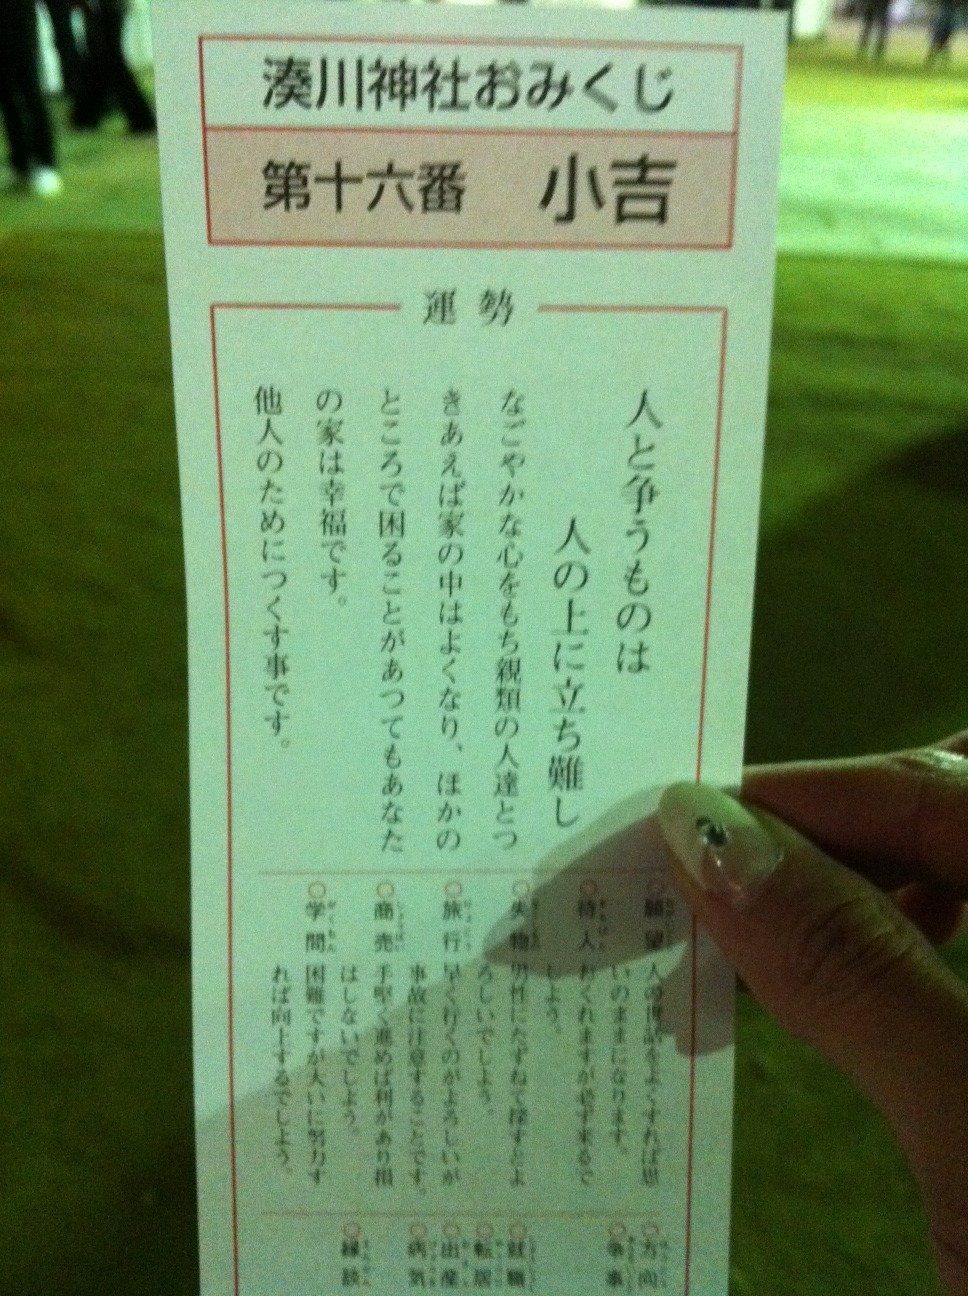 湊川神社おみくじ
第十六番 小吉
運勢
人と争うものは
人の上に立ち難し
なごやかな心をもち親類の人達とつ
きあえば家の中はよくなり、ほかの
ところで困ることがあつてもあなた
の家は幸福です。
他人のためにつくす事です。
○願望 人の世話をよくすれば思
いのままになります。
○待人 おくれますが必ず来るで
しよう。
○失物 男性にたずねて探すとよ
ろしいでしよう。
○旅行 早く行くのがよろしいが
事故に注意することです。
○商売 手堅く進めば利があり損
はしないでしよう。
○学問 困難ですが大いに努力す
れば向上するでしよう。
○方向
○争事
○就職
○転居
○出産
○病気
○縁談